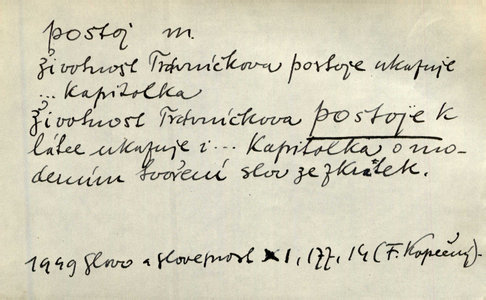 postoj m.
životnost Trávníčkova postoje ukazuje
... Kapitolka
životnost Trávníčkova postoje k
látce ukazuje i ... Kapitolka o mo-
derním tvoření slov ze zkratek.
1949 Slovo a slovesnost XI, 177, 14 (F. Kopečný).